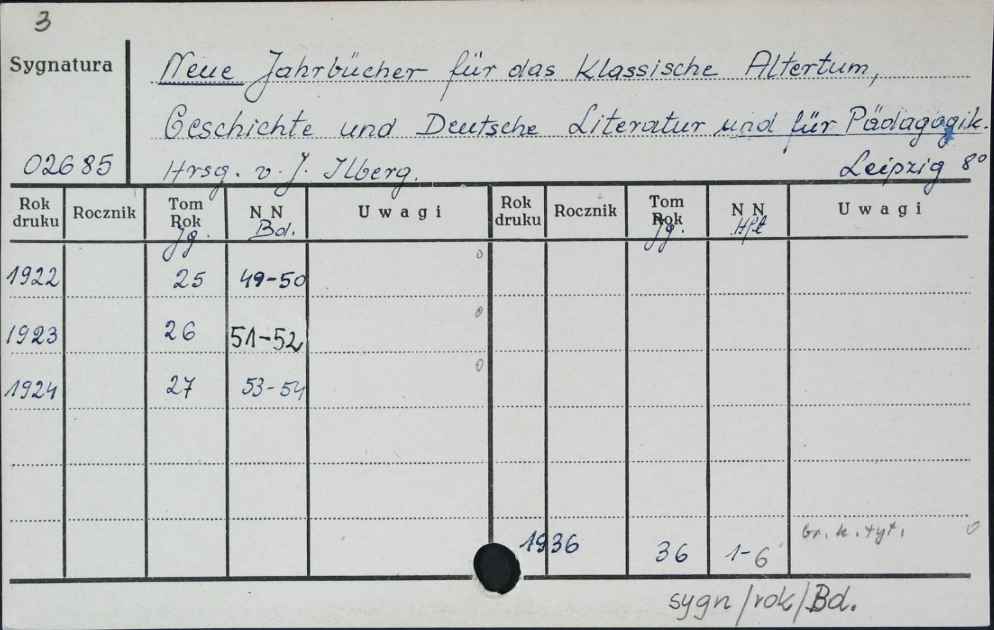 3
Sygnatura
Neue Jahrbücher für das Klassische Altertum,
Geschichte und Deutsche Literatur und für Pädagogik.
02685 Hrsg. v. J. Ilberg. Leipzig 8°
Rok druku Rocznik Tom Rok Jg. NN Bd. Uwagi Rok druku Rocznik Tom Rok Jg. NN Hft Uwagi
1922 25 49-50 0
1923 26 51-52 0
1924 27 53-54 0
1936 36 1-6 br. k. tyt. 0
sygn/rok/Bd.